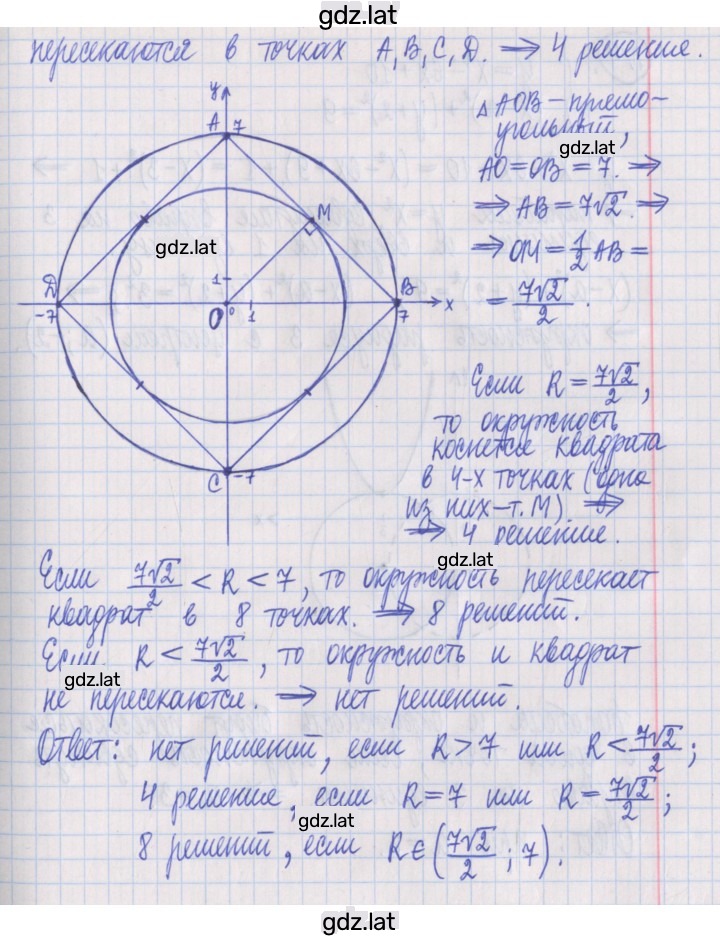 gdz.lat
пересекаются в точках A, B, C, D. ⟹ 4 решение.
y
A 7
△ AOB – прямо-
угольный,
gdz.lat
AO = OB = 7. ⟹
⟹ AB = 7√2. ⟹
M
gdz.lat
⟹ OM = 1/2 AB =
= 7√2/2.
D
1
B
-7
O
0
1
7
x
Если R = 7√2/2,
то окружность
коснется квадрата
в 4-х точках (одна
из них – т. M). ⟹
C -7
⟹ 4 решение.
gdz.lat
Если 7√2/2 < R < 7, то окружность пересекает
квадрат в 8 точках. ⟹ 8 решений.
Если R < 7√2/2, то окружность и квадрат
gdz.lat
не пересекаются. ⟹ нет решений.
Ответ: нет решений, если R > 7 или R < 7√2/2;
4 решение, если R = 7 или R = 7√2/2;
gdz.lat
8 решений, если R ∈ (7√2/2; 7).
gdz.lat